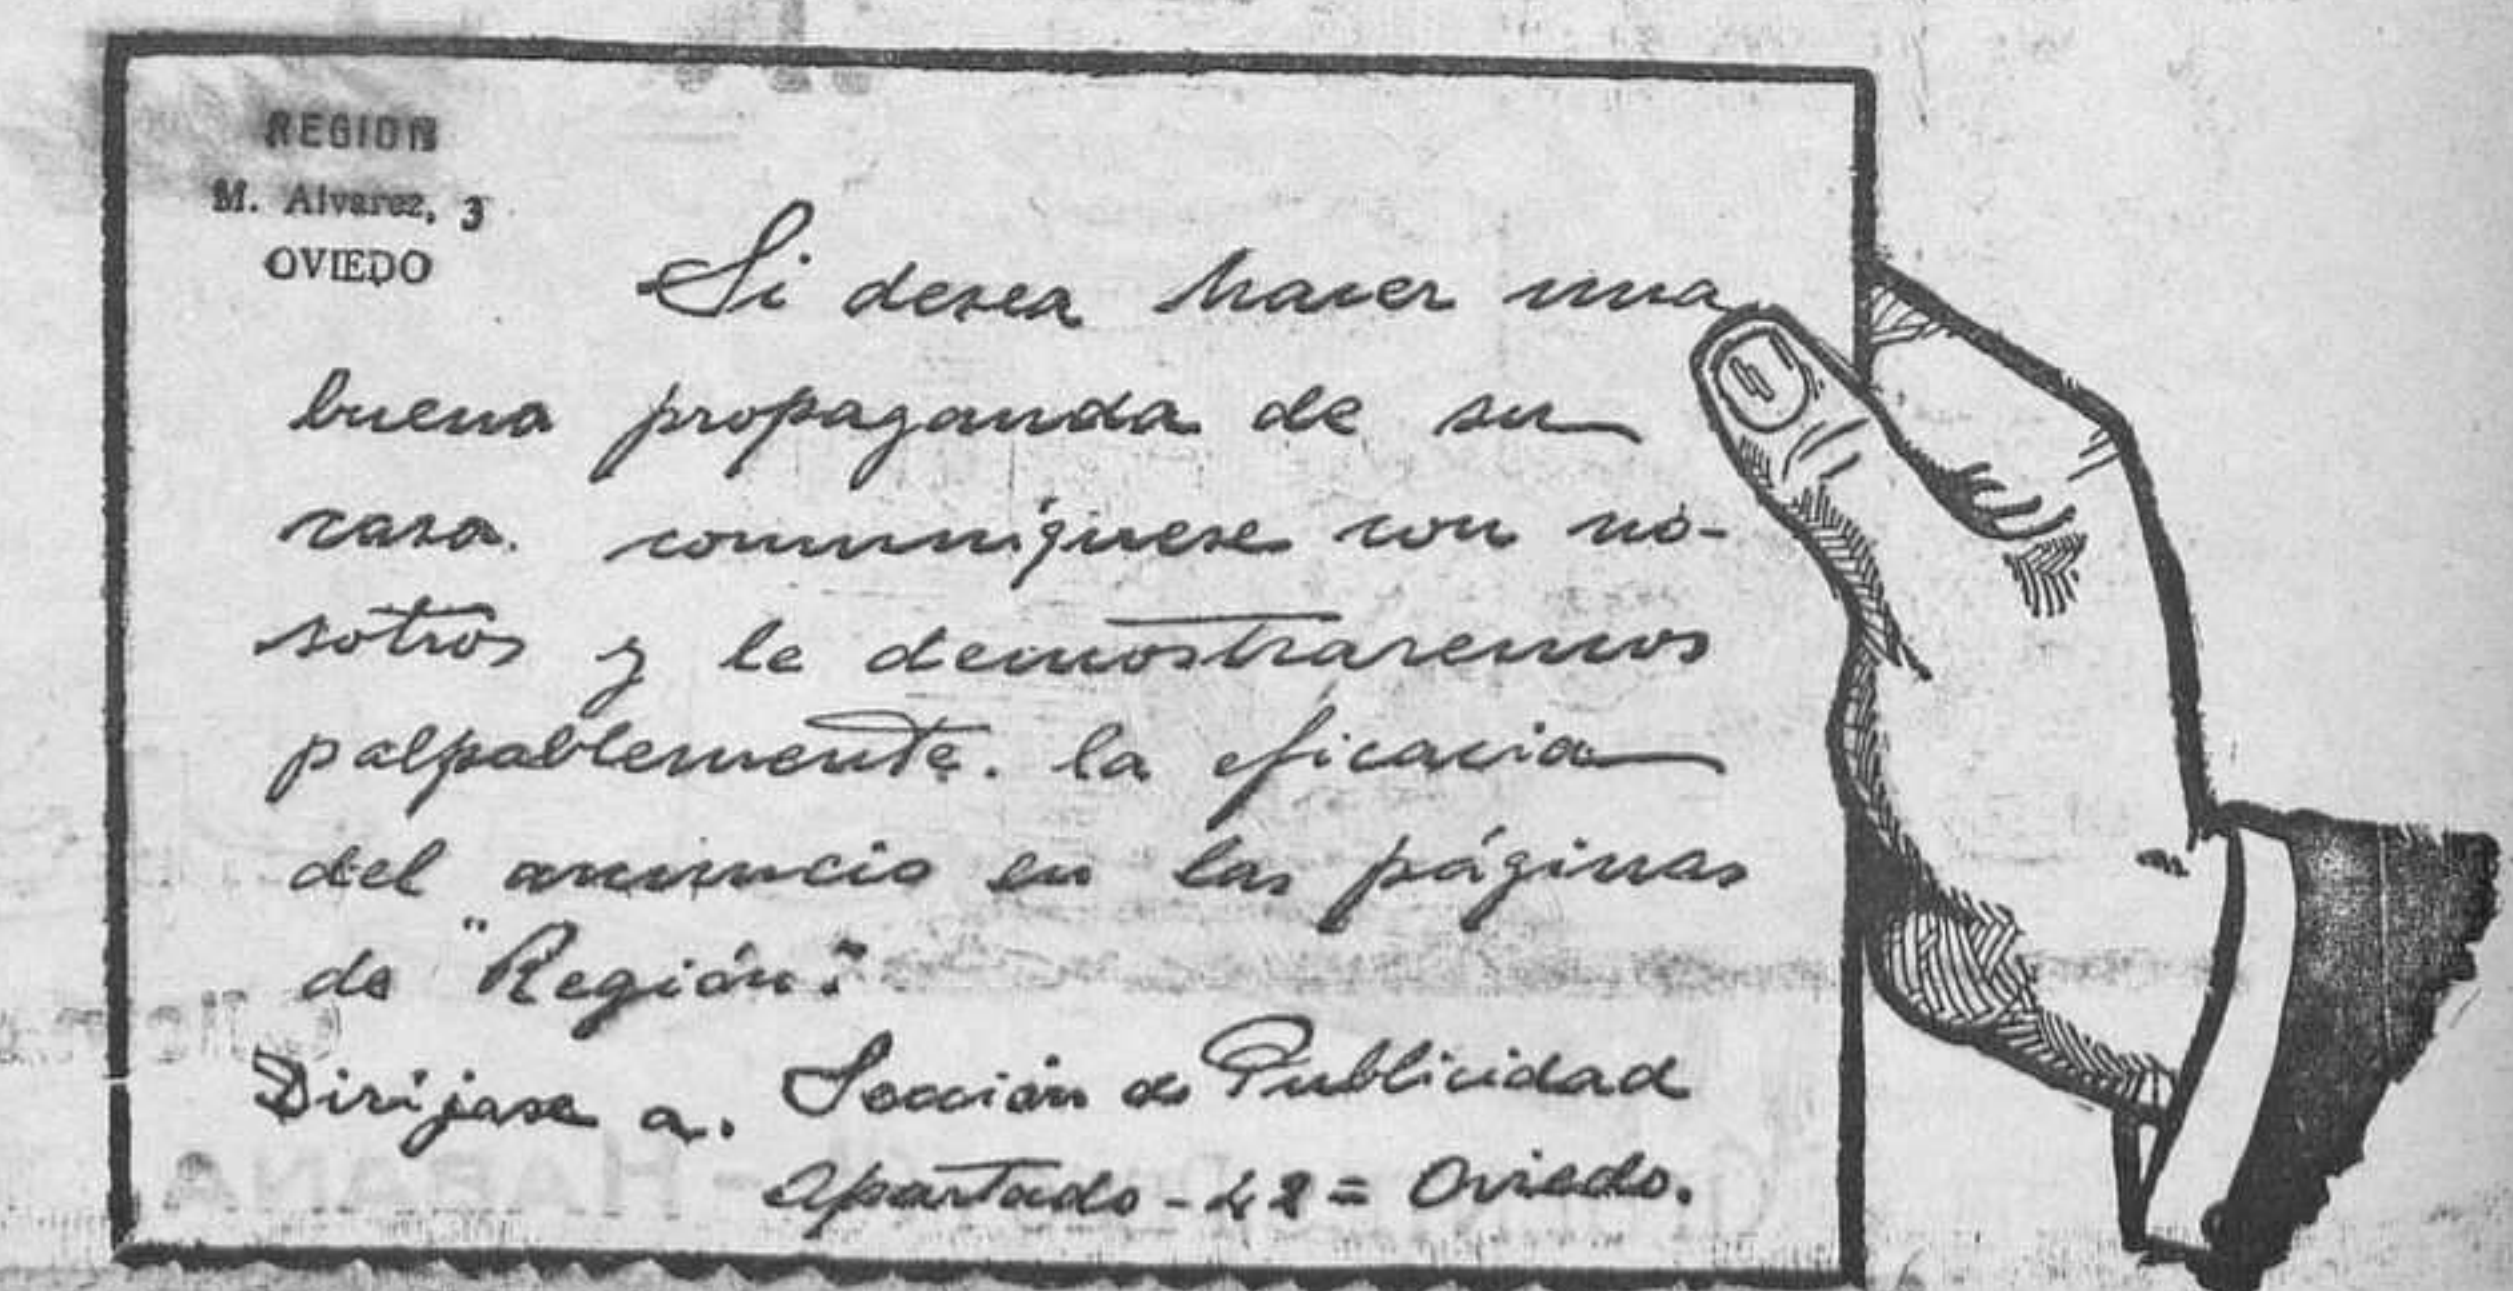 REGION
M. Alvarez, 3
OVIEDO
Si desea hacer una
buena propaganda de su
casa. comuníquese con no-
sotros y le demostraremos
palpablemente. la eficacia
del anuncio en las páginas
de "Región."
Diríjase a. Sección de Publicidad
Apartado - 42 = Oviedo.
HABANA